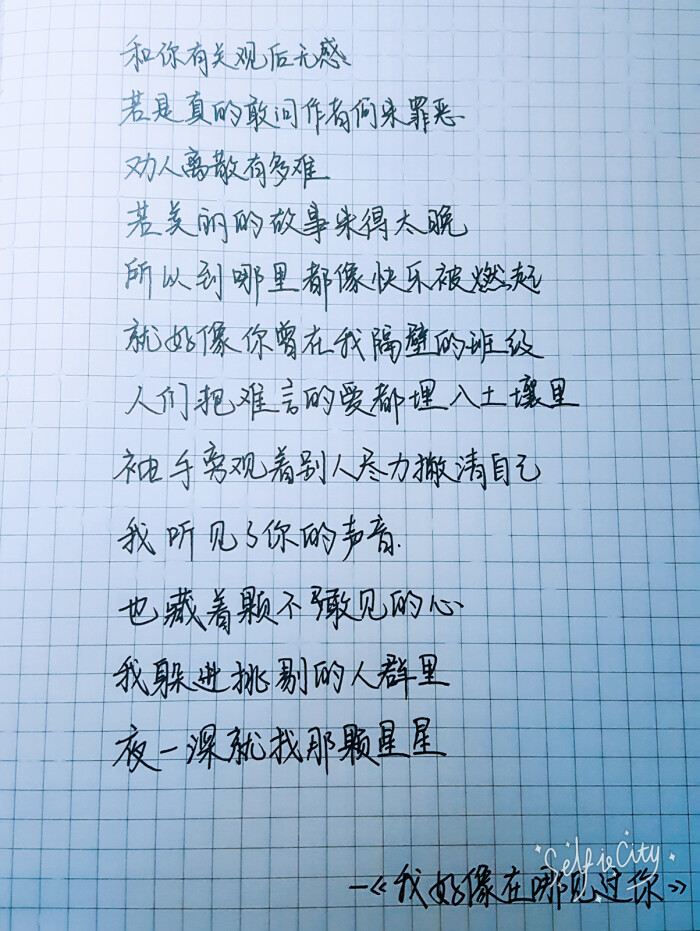 和你有关观后无感
若是真的敢问作者何来罪恶
劝人离散有多难
若美丽的故事来得太晚
所以到哪里都像快乐被燃起
就好像你曾在我隔壁的班级
人们把难言的爱都埋入土壤里
袖手旁观着别人尽力撇清自己
我听见了你的声音
也藏着颗不敢见的心
我躲进挑剔的人群里
夜一深就找那颗星星
SelfieCity
—《我好像在哪见过你》